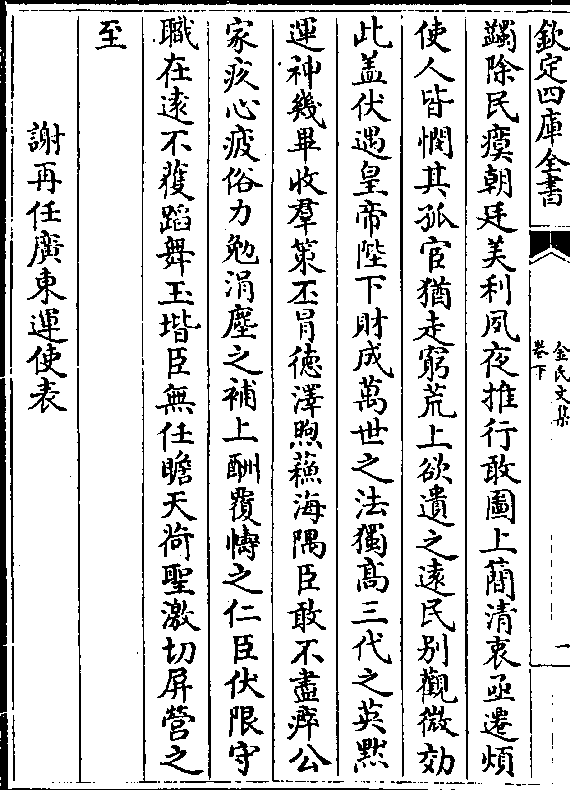 欽定四庫全書
金氏文集
卷下
一
蠲除民瘼朝廷美利夙夜推行敢圖上蕳清衷亟遷煩
使人皆憫其孤宦猶走窮荒上欲遺之逺民别觀微効
此盖伏遇皇帝陛下財成萬世之法獨髙三代之英黙
運神幾畢收羣策丕冐徳澤煦蘓海隅臣敢不盡瘁公
家疚心疲俗力勉涓塵之補上酬覆幬之仁臣伏限守
職在逺不獲蹈舞玉堦臣無任瞻天荷聖激切屏營之
至
謝再任廣東運使表